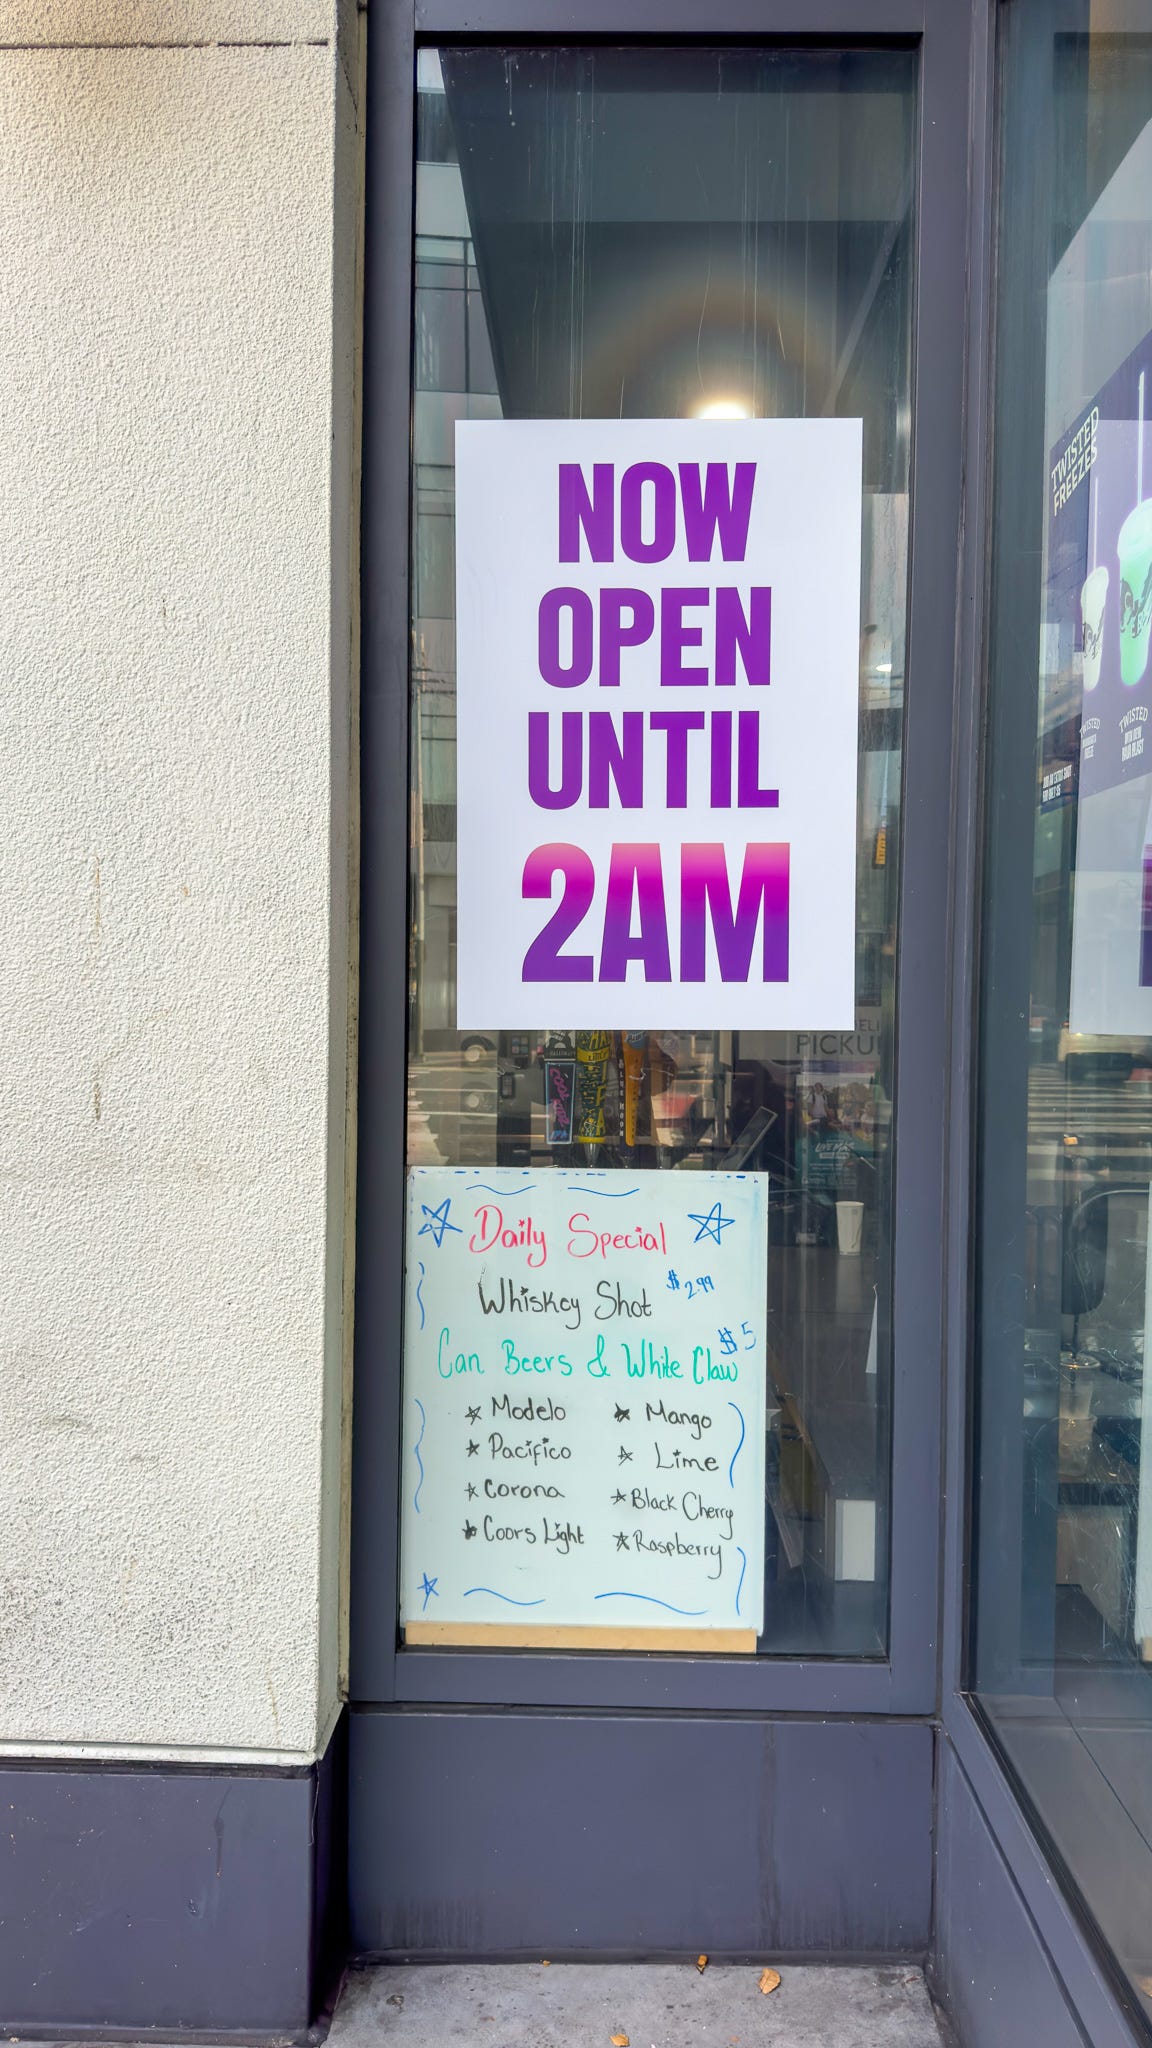 NOW
OPEN
UNTIL
2AM
TWISTED
FREEZES
TWISTED
TWISTED
PICKU
Daily Special
Whiskey Shot $2.99
Can Beers & White Claw $5
Modelo
Pacifico
Corona
Coors Light
Mango
Lime
Black Cherry
Raspberry